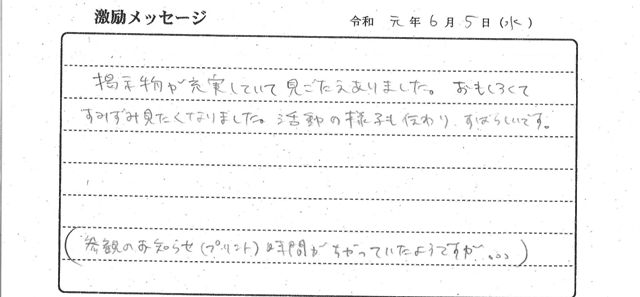 激励メッセージ 令和 元年6月5日(水)
掲示物が充実していて見ごたえありました。おもしろくて
すみずみ見たくなりました。活動の様子も伝わり すばらしいです。
(参観のお知らせ(プリント)時間がちがっていたようですが...。)